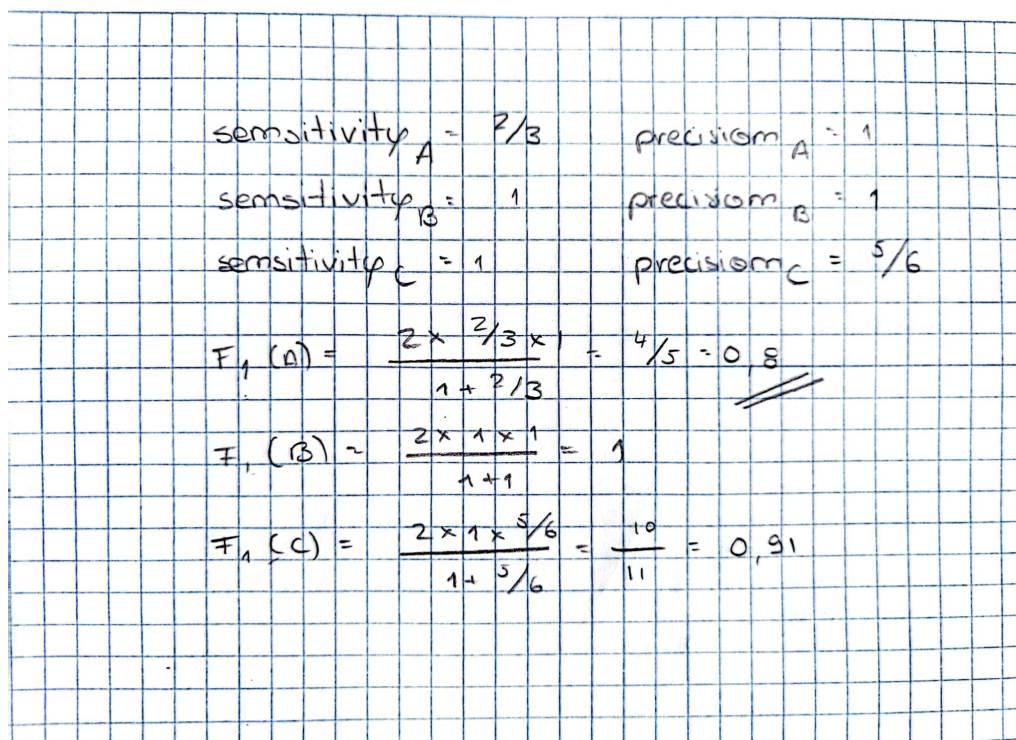 sensitivity_A = 2/3 precision_A = 1
sensitivity_B = 1 precision_B = 1
sensitivity_C = 1 precision_C = 5/6
F₁ (A) = (2 × 2/3 × 1) / (1 + 2/3) = 4/5 = 0,8
F₁ (B) = (2 × 1 × 1) / (1 + 1) = 1
F₁ (C) = (2 × 1 × 5/6) / (1 + 5/6) = 10/11 = 0,91